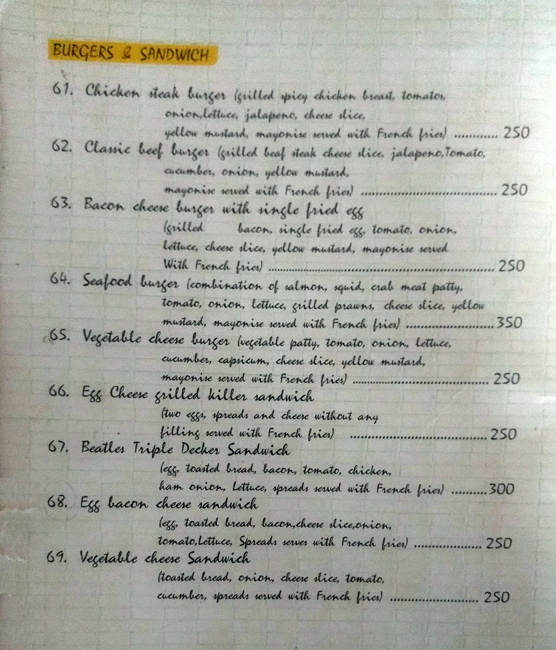 BURGERS & SANDWICH
61. Chicken steak burger (grilled spicy chicken breast, tomatos,
onion,lettuce, jalapeno, cheese slice,
yellow mustard, mayonise served with French fries) ............ 250
62. Classic beef burger (grilled beaf steak cheese slice, jalapeno,Tomato,
cucumber, onion, yellow mustard,
mayonise served with French fries) ..................................... 250
63. Bacon cheese burger with single fried egg
(grilled bacon, single fried egg, tomato, onion,
lettuce, cheese slice, yellow mustard, mayonise served
With French fries) ............................................................ 250
64. Seafood burger (combination of salmon, squid, crab meat patty,
tomato, onion, lettuce, grilled prawns, cheese slice, yellow
mustard, mayonise served with French fries) ........................ 350
65. Vegetable cheese burger (vegetable patty, tomato, onion, lettuce,
cucumber, capsicum, cheese slice, yellow mustard,
mayonise served with French fries) ..................................... 250
66. Egg Cheese grilled killer sandwich
(two eggs, spreads and cheese without any
filling served with French fries) ..................................... 250
67. Beatles Triple Decker Sandwich
(egg, toasted bread, bacon, tomato, chicken,
ham onion, Lettuce, spreads served with French fries) .......... 300
68. Egg bacon cheese sandwich
(egg, toasted bread, bacon,cheese slice,onion,
tomato,Lettuce, Spreads serves with French fries) .................. 250
69. Vegetable cheese Sandwich
(toasted bread, onion, cheese slice, tomato,
cucumber, spreads served with French fries) ........................ 250